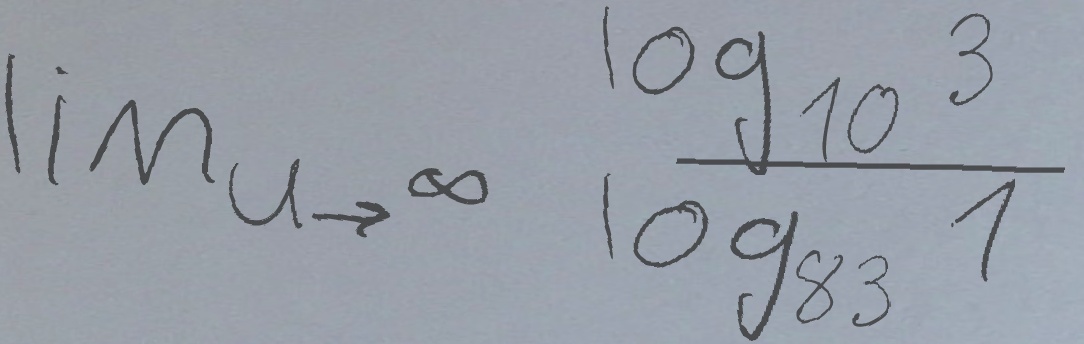 lim_{u \to \infty} \frac{\log_{10} 3}{\log_{83} 1}